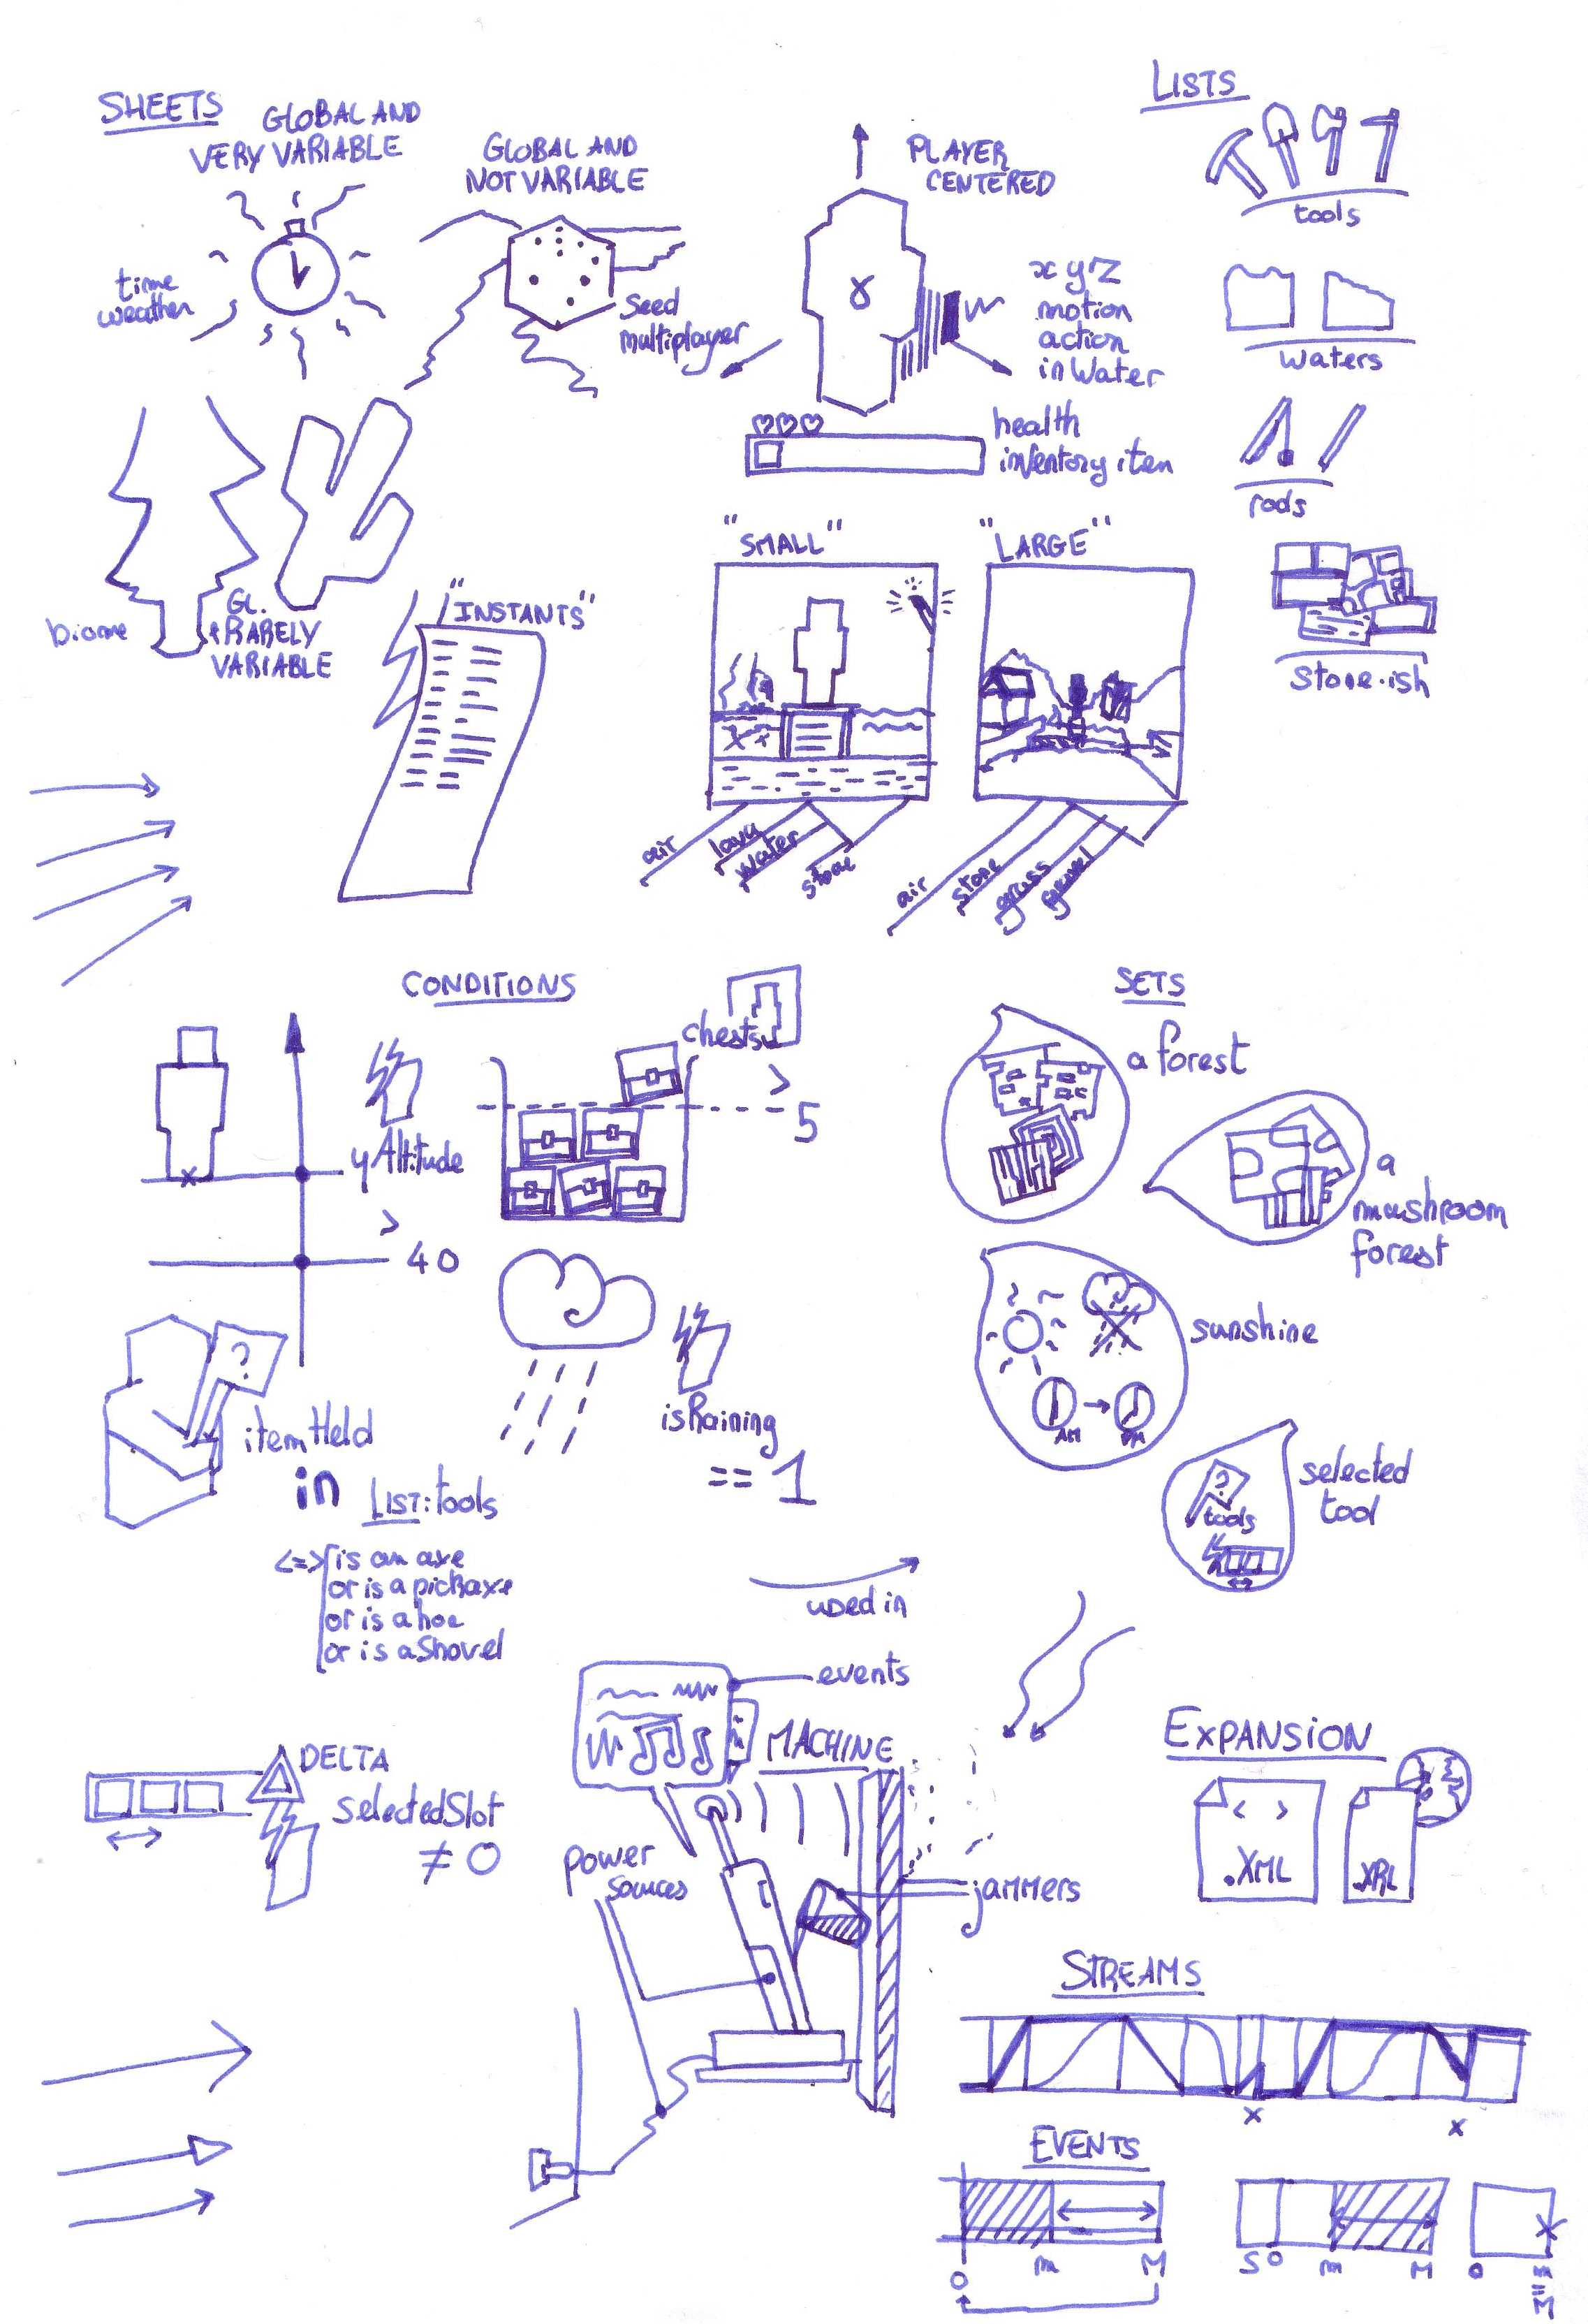 SHEETS
GLOBAL AND
VERY VARIABLE
time
weather
GLOBAL AND
NOT VARIABLE
Seed
multiplayer
PLAYER
CENTERED
xyz
motion
action
in Water
health
inventory item
LISTS
tools
waters
rods
stone.ish
biome
GL.
& RARELY
VARIABLE
"INSTANTS"
"SMALL"
air
lava
water
stone
"LARGE"
air
stone
grass
gravel
CONDITIONS
yAltitude
>
40
chests
>
5
?
itemHeld
in LIST:tools
<=> is an axe
or is a pickaxe
or is a hoe
or is a Shovel
isRaining
== 1
SETS
a forest
a
mushroom
forest
sunshine
AM
PM
selected
tool
?
tools
used in
DELTA
selectedSlot
≠ 0
events
MACHINE
power
sources
jammers
EXPANSION
< >
.XML
.XRL
STREAMS
x
x
EVENTS
0 m M
S 0 m M
0 m
=
M